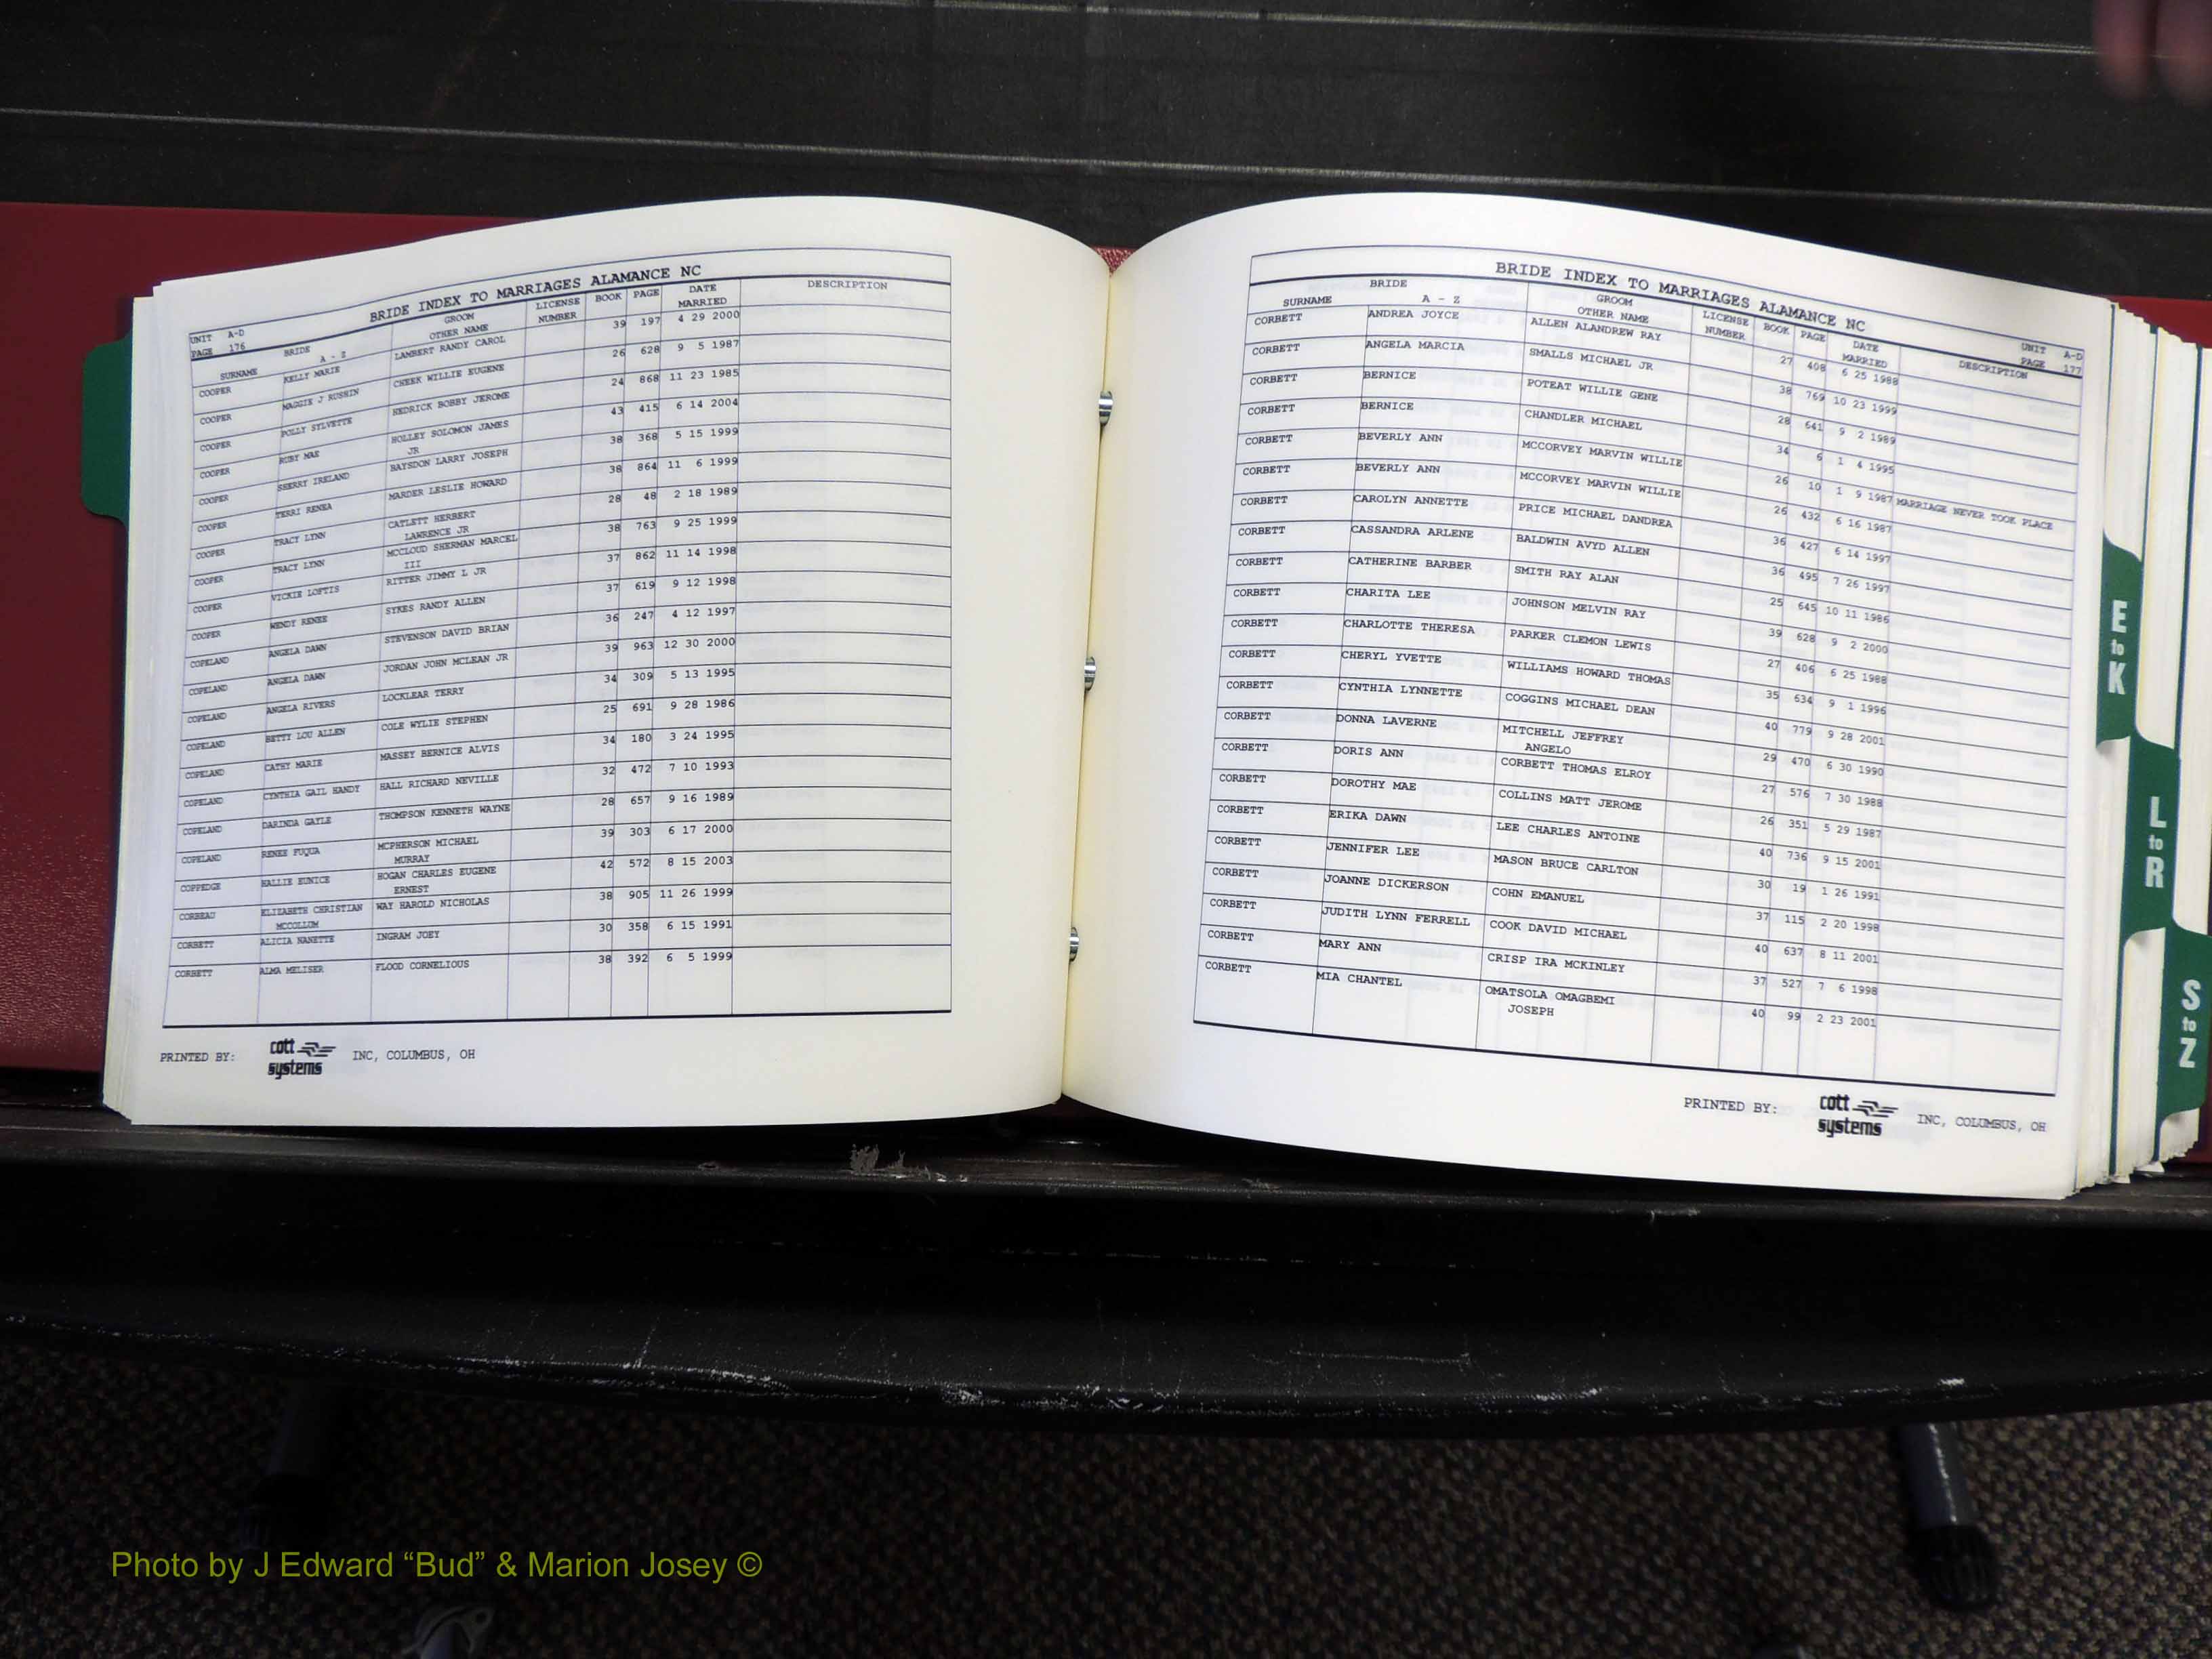 BRIDE INDEX TO MARRIAGES ALAMANCE NC
UNIT A-D
PAGE 176
BRIDE GROOM LICENSE BOOK PAGE DATE DESCRIPTION
SURNAME A - Z OTHER NAME NUMBER MARRIED
COOPER KELLY MARIE LAMBERT RANDY CAROL 39 197 4 29 2000
COOPER MAGGIE J RUSHIN CHEEK WILLIE EUGENE 26 628 9 5 1987
COOPER POLLY SYLVETTE HEDRICK BOBBY JEROME 24 868 11 23 1985
COOPER RUBY MAE HOLLEY SOLOMON JAMES 43 415 6 14 2004
JR
COOPER SHERRY IRELAND BAYSDON LARRY JOSEPH 38 368 5 15 1999
COOPER TERRI RENEA MARDER LESLIE HOWARD 38 864 11 6 1999
COOPER TRACY LYNN CATLETT HERBERT 28 48 2 18 1989
LAWRENCE JR
COOPER TRACY LYNN MCCLOUD SHERMAN MARCEL 38 763 9 25 1999
III
COOPER VICKIE LOFTIS RITTER JIMMY L JR 37 862 11 14 1998
COOPER WENDY RENEE SYKES RANDY ALLEN 37 619 9 12 1998
COPELAND ANGELA DAWN STEVENSON DAVID BRIAN 36 247 4 12 1997
COPELAND ANGELA DAWN JORDAN JOHN MCLEAN JR 39 963 12 30 2000
COPELAND ANGELA RIVERS LOCKLEAR TERRY 34 309 5 13 1995
COPELAND BETTY LOU ALLEN COLE WYLIE STEPHEN 25 691 9 28 1986
COPELAND CATHY MARIE MASSEY BERNICE ALVIS 34 180 3 24 1995
COPELAND CYNTHIA GAIL HANDY HALL RICHARD NEVILLE 32 472 7 10 1993
COPELAND DARINDA GAYLE THOMPSON KENNETH WAYNE 28 657 9 16 1989
COPELAND RENEE FUQUA MCPHERSON MICHAEL 39 303 6 17 2000
MURRAY
COPPEDGE HALLIE EUNICE HOGAN CHARLES EUGENE 42 572 8 15 2003
ERNEST
CORBEAU ELIZABETH CHRISTIAN WAY HAROLD NICHOLAS 38 905 11 26 1999
MCCOLLUM
CORBETT ALICIA NANETTE INGRAM JOEY 30 358 6 15 1991
CORBETT ALMA MELISER FLOOD CORNELIOUS 38 392 6 5 1999
PRINTED BY: cott systems INC, COLUMBUS, OH
BRIDE INDEX TO MARRIAGES ALAMANCE NC
UNIT A-D
PAGE 177
BRIDE GROOM LICENSE BOOK PAGE DATE DESCRIPTION
SURNAME A - Z OTHER NAME NUMBER MARRIED
CORBETT ANDREA JOYCE ALLEN ALANDREW RAY 27 408 6 25 1988
CORBETT ANGELA MARCIA SMALLS MICHAEL JR 38 769 10 23 1999
CORBETT BERNICE POTEAT WILLIE GENE 28 641 9 2 1989
CORBETT BERNICE CHANDLER MICHAEL 34 6 1 4 1995
CORBETT BEVERLY ANN MCCORVEY MARVIN WILLIE 26 10 1 9 1987 MARRIAGE NEVER TOOK PLACE
CORBETT BEVERLY ANN MCCORVEY MARVIN WILLIE 26 432 6 16 1987
CORBETT CAROLYN ANNETTE PRICE MICHAEL DANDREA 36 427 6 14 1997
CORBETT CASSANDRA ARLENE BALDWIN AVYD ALLEN 36 495 7 26 1997
CORBETT CATHERINE BARBER SMITH RAY ALAN 25 645 10 11 1986
CORBETT CHARITA LEE JOHNSON MELVIN RAY 39 628 9 2 2000
CORBETT CHARLOTTE THERESA PARKER CLEMON LEWIS 27 406 6 25 1988
CORBETT CHERYL YVETTE WILLIAMS HOWARD THOMAS 35 634 9 1 1996
CORBETT CYNTHIA LYNNETTE COGGINS MICHAEL DEAN 40 779 9 28 2001
CORBETT DONNA LAVERNE MITCHELL JEFFREY 29 470 6 30 1990
ANGELO
CORBETT DORIS ANN CORBETT THOMAS ELROY 27 576 7 30 1988
CORBETT DOROTHY MAE COLLINS MATT JEROME 26 351 5 29 1987
CORBETT ERIKA DAWN LEE CHARLES ANTOINE 40 736 9 15 2001
CORBETT JENNIFER LEE MASON BRUCE CARLTON 30 19 1 26 1991
CORBETT JOANNE DICKERSON COHN EMANUEL 37 115 2 20 1998
CORBETT JUDITH LYNN FERRELL COOK DAVID MICHAEL 40 637 8 11 2001
CORBETT MARY ANN CRISP IRA MCKINLEY 37 527 7 6 1998
CORBETT MIA CHANTEL OMATSOLA OMAGBEMI 40 99 2 23 2001
JOSEPH
PRINTED BY: cott systems INC, COLUMBUS, OH
E to K
L to R
S to Z
Photo by J Edward “Bud” & Marion Josey ©